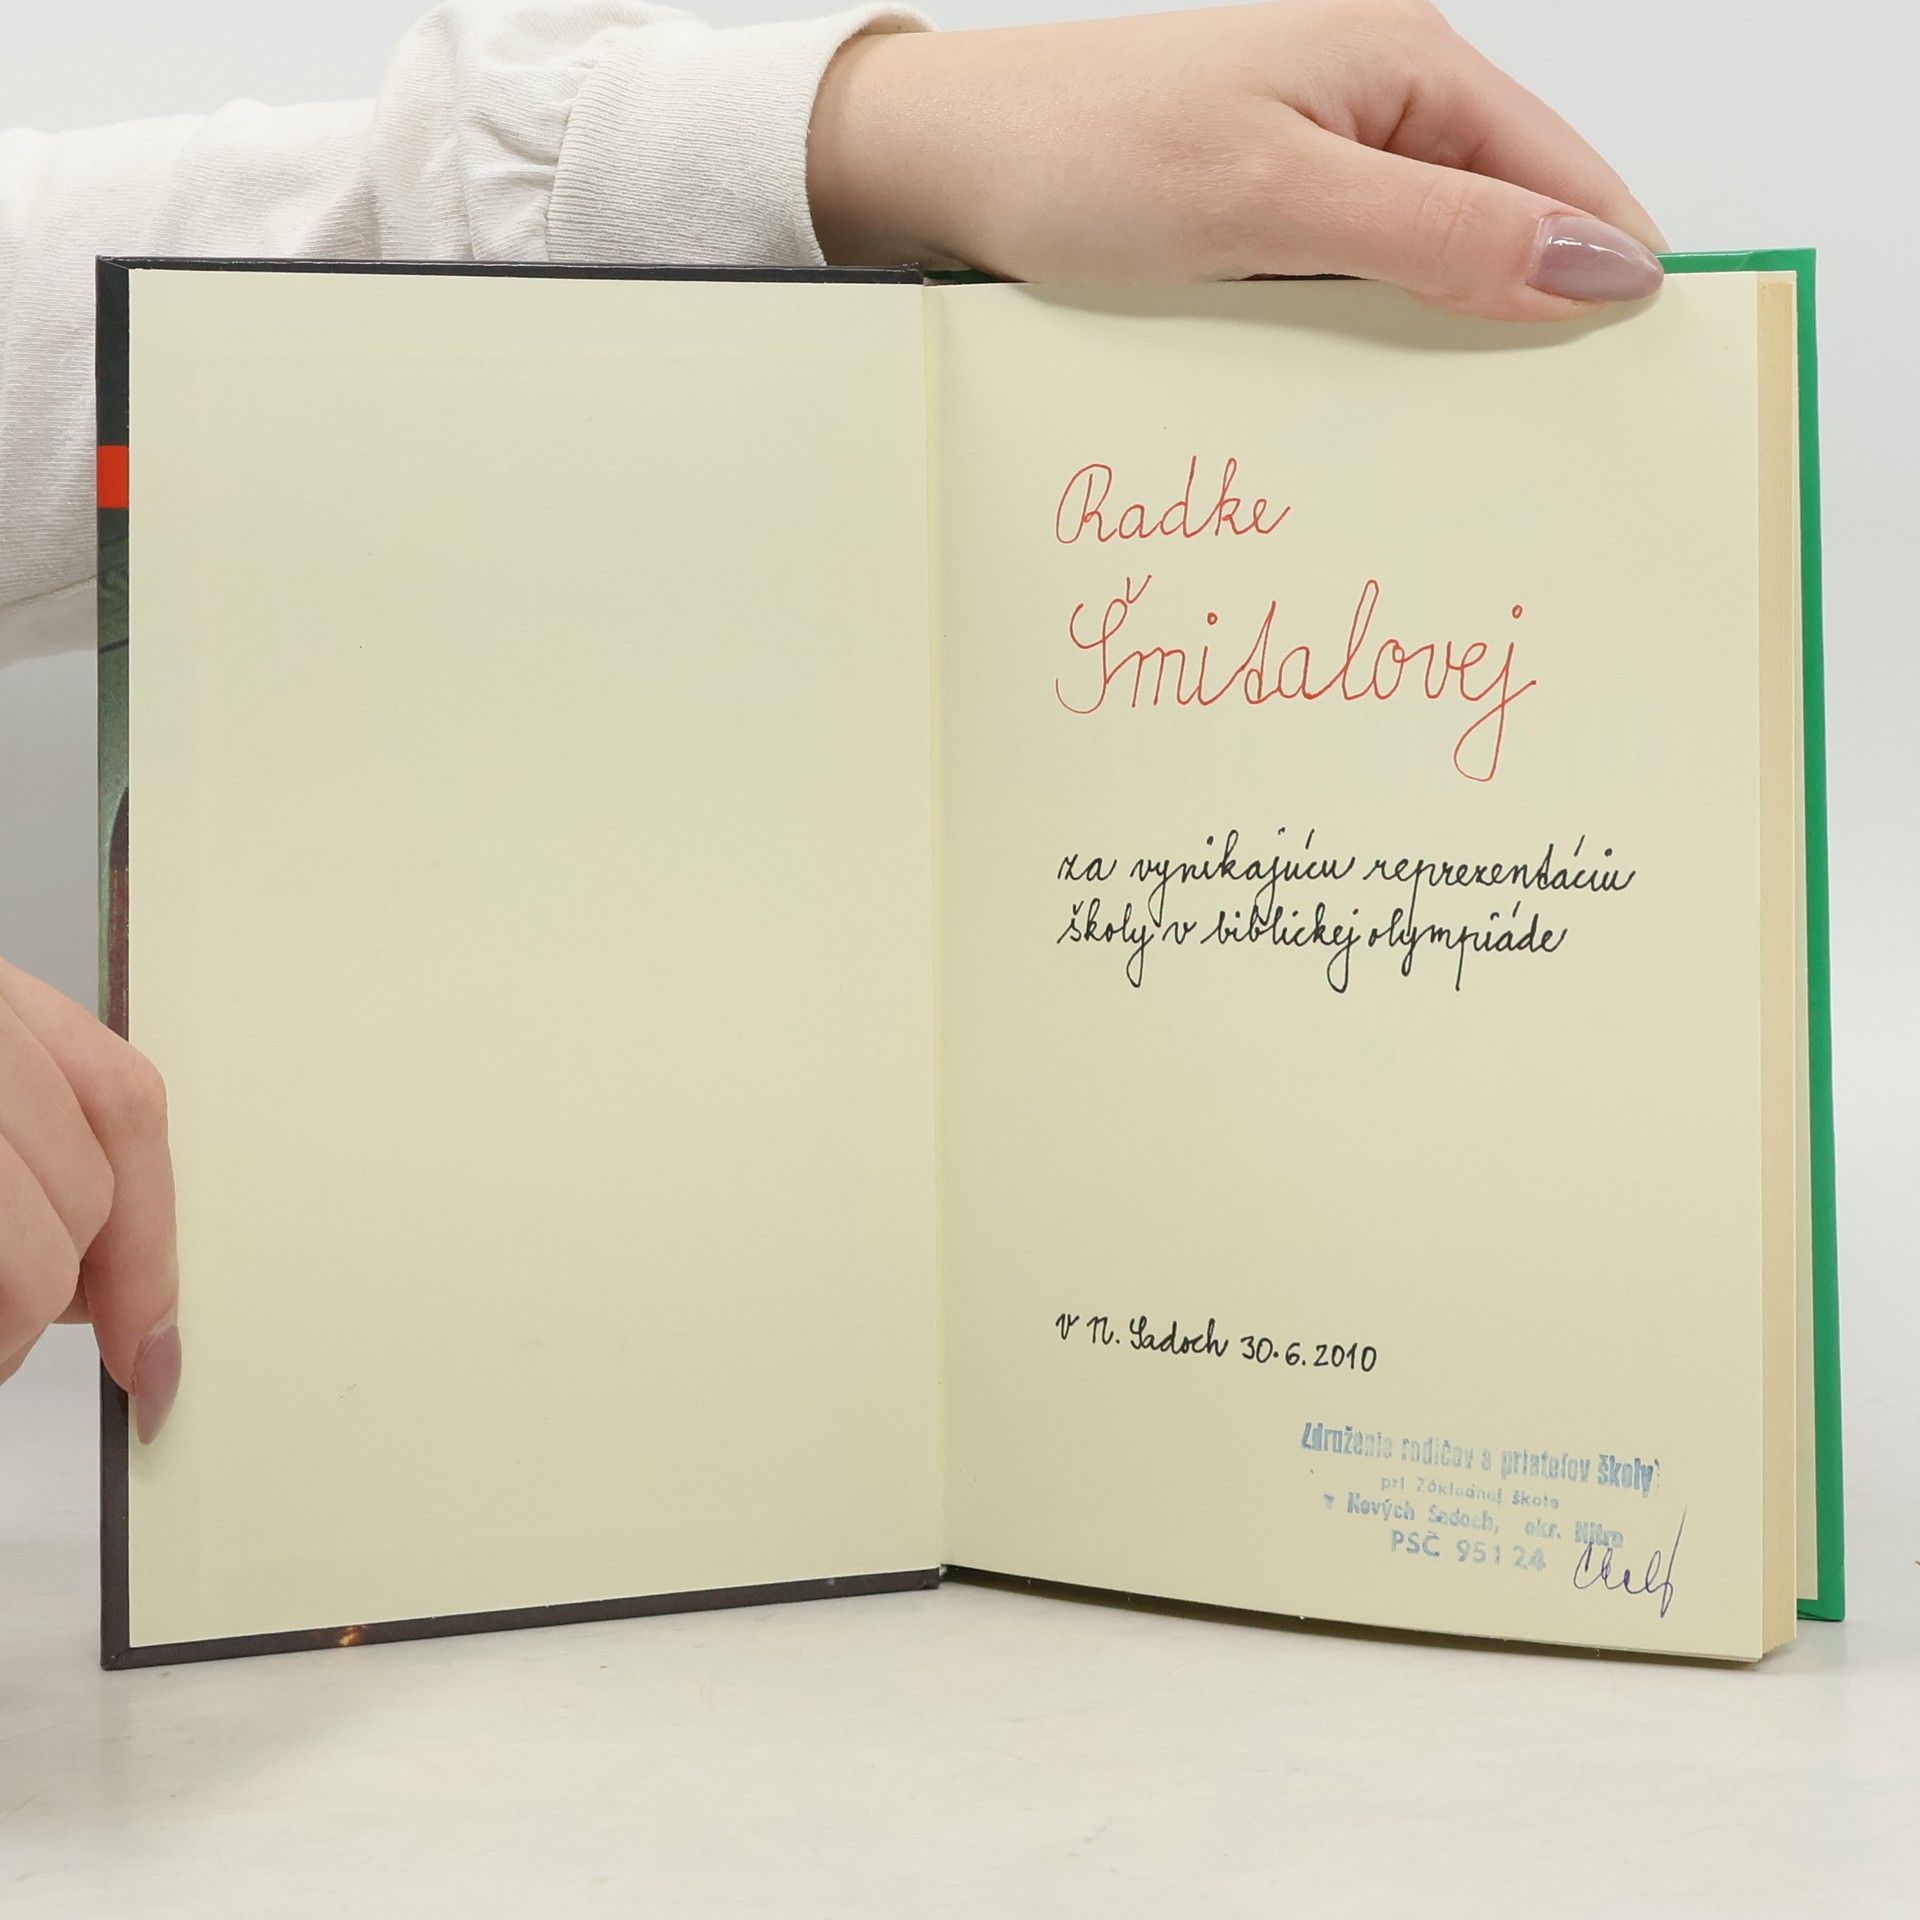 Radke
Šmitalovej
za vynikajúcu reprezentáciu
školy v biblickej olympiáde
v N. Sadoch 30.6.2010
Združenie rodičov a priateľov školy
pri Základnej škole
v Nových Sadoch, okr. Nitra
PSČ 951 24